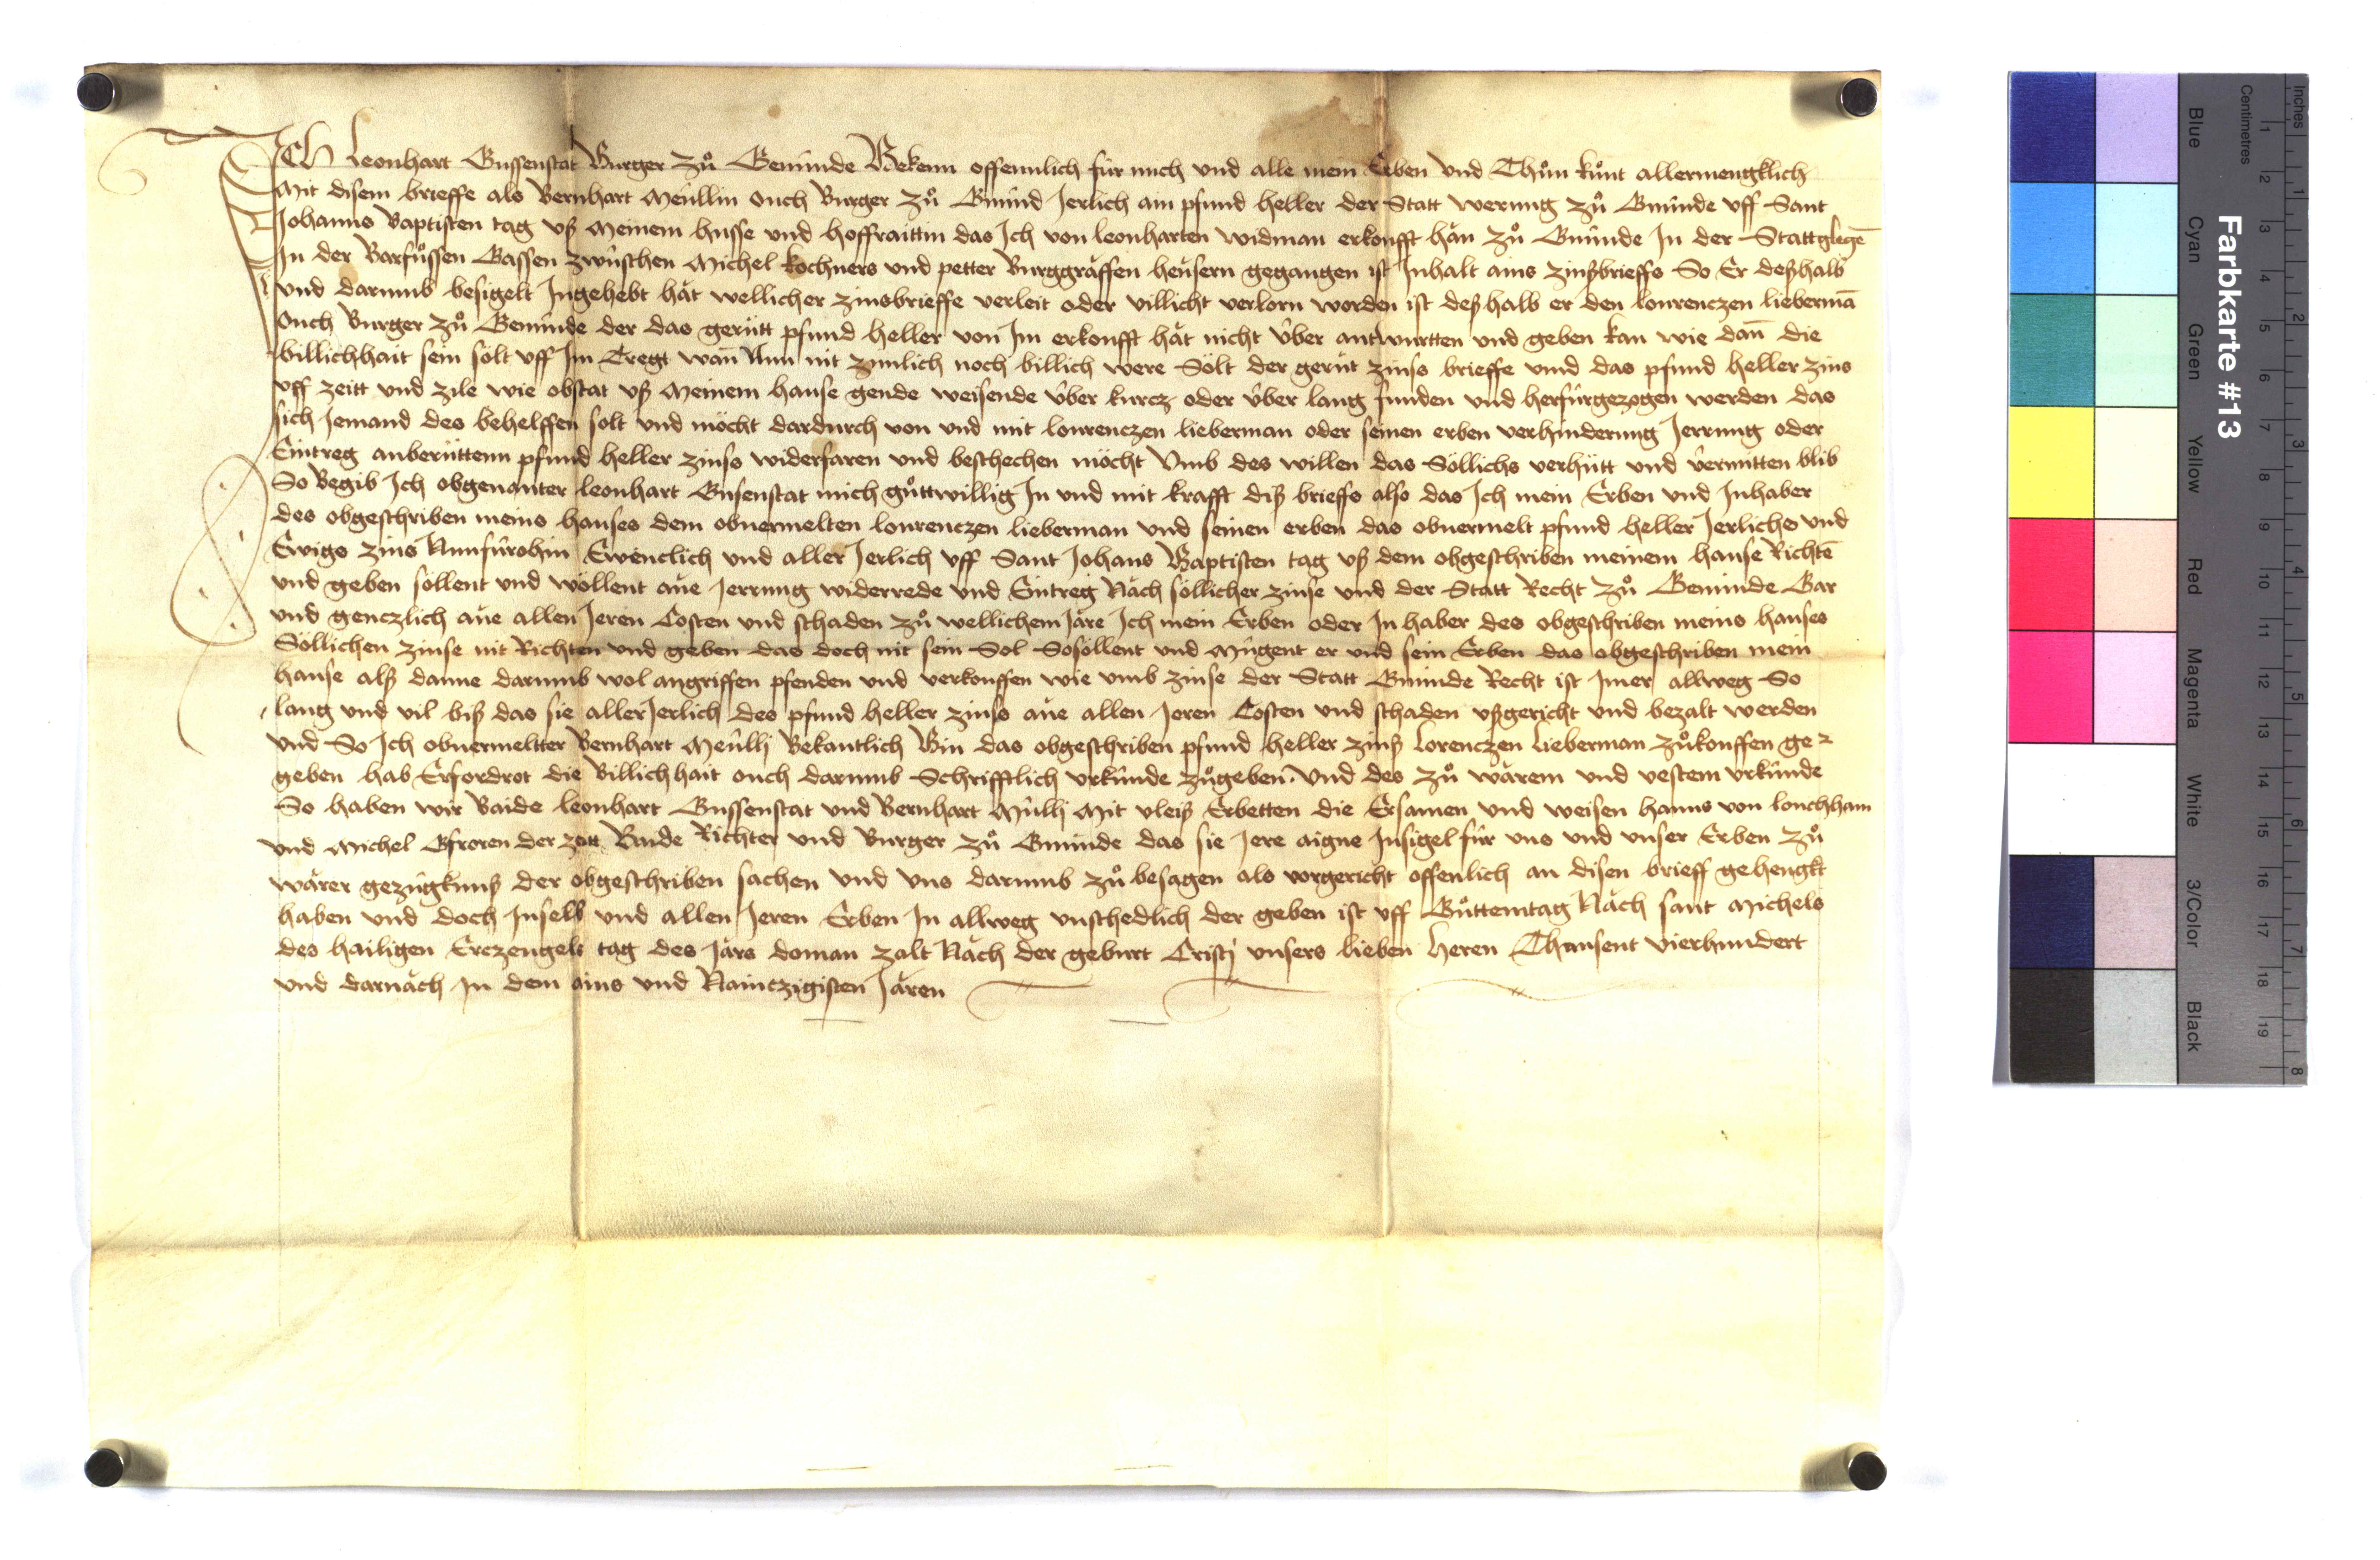 Ich Leonhart Gussenstat Burger zů Gemünde Bekenn offennlich für mich und alle mein Erben und Thůn kůnt allermengklich
Mit disem brieffe als Bernhart Meüllin ouch Burger zů Gmünd Jerlich ain pfund heller der Statt werung zů Gmünde uff Sant
Johanns Baptisten tag uß Meinem husse und hoffraittin das Ich von leonharten widman erkoufft hän zů Gmünde In der Statt glegē
In der Barfůssen Gassen zwüschen Michel kochners und petter Burggräffen heüsern gegangen ist Inhalt ains zinßbrieffs So Er deßhalb
und darumb besigelt Ingehebt hät wellicher zinsbrieffe verleit oder villicht verlorn worden ist deßhalb er den lourenczen liebermā
Ouch Burger zů Gemünde der das gerütt pfund heller von Im erkoufft hät nicht über antwurtten und geben kan wie dañ die
billichhait sein solt uff Im Tregt wañ Nun nit zimlich noch billich were Sölt der gerüt zinse brieffe und das pfund heller zins
uff zeitt und zile wie obstat uß Meinem hause gende weisende über kurcz oder über lang funden und herfürgezogen werden das
sich Jemand des behelffen solt und möcht dardurch von und mit lourenczen lieberman oder seinen erben verhinderung Jerrung oder
Eintreg anberüttenn pfund heller zinss widerfaren und beschechen möcht Umb des willen das Söllichs verhütt und vermitten blib
So Begib Ich obgenanter leonhart Gusenstat mich gůttwillig In und mit krafft diß brieffs also das Ich mein Erben und Inhaber
des obgeschriben meins hauses dem obuermelten lourenczen lieberman und seinen erben das obuermelt pfund heller Jerlichs und
Ewigs zins Nunfürohin Ewenclich und aller Jerlich uff Sant Johans Baptisten tag uß dem obgeschriben meinem hause Richtē
und geben söllent und wöllent äne Jerrung widerrede und Eintreg Näch söllicher zinse und der Statt Recht zů Gemünde Gar
und genczlich äne allen Jeren Costen und schaden zů wellichem Järe Ich mein Erben oder In haber des obgeschriben meins hauses
Söllichen zinse nit Richten und geben das doch nit sein Sol Sosöllent und Mügent er und sein Erben das obgeschriben mein
hause alß danne darumb wol angriffen pfenden und verkouffen wie umb zinse der Statt Gmünde Recht ist Imer allweg So
lang und vil biß das sie aller Jerlich des pfund heller zinss äne allen Jeren Costen und schaden ußgericht und bezalt werden
Und So Ich obuermeltter Bernhart Meülli Bekantlich Bin das obgeschriben pfund heller zinß Lorenczen Lieberman zůkouffen ge
geben hab Erfordrot die Billichhait ouch darumb Schrifftlich urkünde zůgeben. Und des zů wärem und vestem urkünde
So haben wir Baide leonhart Gussenstat und Bernhart Mülli Mit vleiß Erbetten die Ersamen und weisen hanns von louchham
und Michel Gfroren der zeitt Baide Richter und Burger zů Gmünde das sie Jere aigne Insigel für uns und unser Erben zů
wärer gezügknuß der obgeschriben sachen und uns darumb zů besagen als vorgericht offenlich an disen brieff gehengkt
haben und doch Inselb und allen Jeren Erben In allweg unschedlich der geben ist uff Gůttemtag Näch sant Michels
des hailigen Erczengels tag des Järs doman zalt Näch der geburt Cristj unsers lieben heren Thausent vierhundert
und darnäch In dem ains und Nainczigisten Jären
Farbkarte #13
Inches
Centimetres
1 2 3 4 5 6 7 8 9 10 11 12 13 14 15 16 17 18 19
1 2 3 4 5 6 7 8
Blue Cyan Green Yellow Red Magenta White 3/Color Black